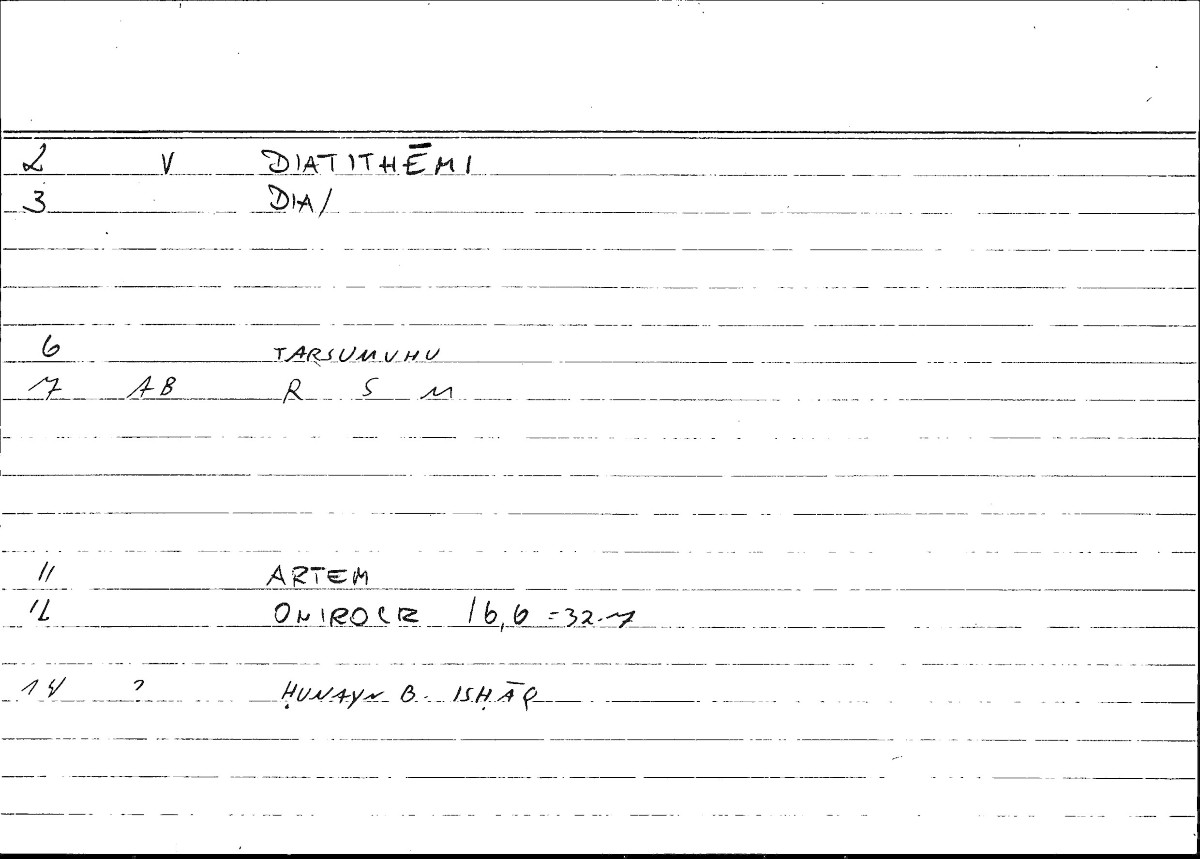 2 V DIATITHĒMI
3 DIA/
6 TARSUMUHU
7 AB R S M
11 ARTEM
12 ONIROCR 16,6 =32.7
14 ? ḤUNAYN B. ISḤĀQ